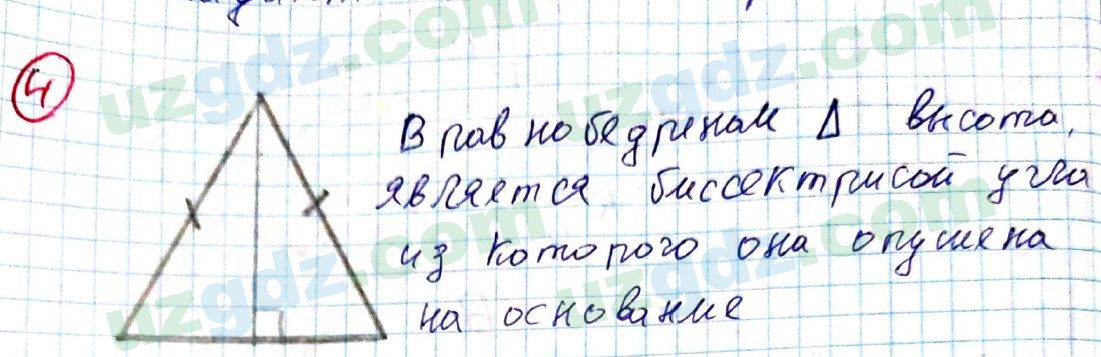 4
В равнобедренам Δ высота,
является биссектрисой угла
из которого она опущена
на основание
uzgdz.com
uzgdz.com
uzgdz.com
uzgdz.com
uzgdz.com